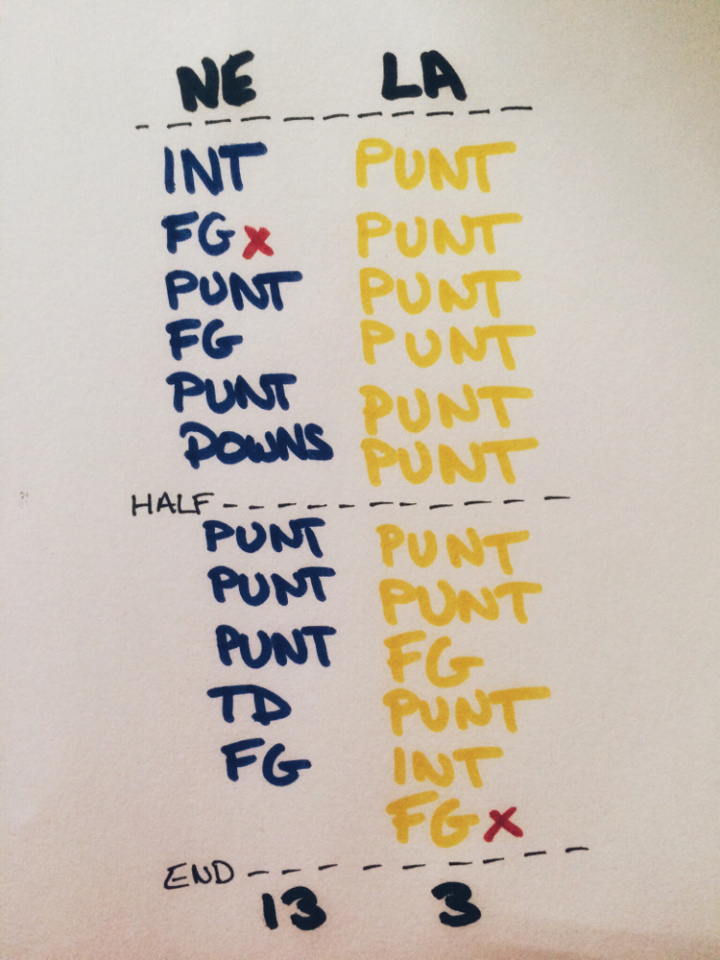 NE LA
INT PUNT
FG x PUNT
PUNT PUNT
FG PUNT
PUNT PUNT
DOWNS PUNT
HALF
PUNT PUNT
PUNT PUNT
PUNT FG
TD PUNT
FG INT
FG x
END
13 3